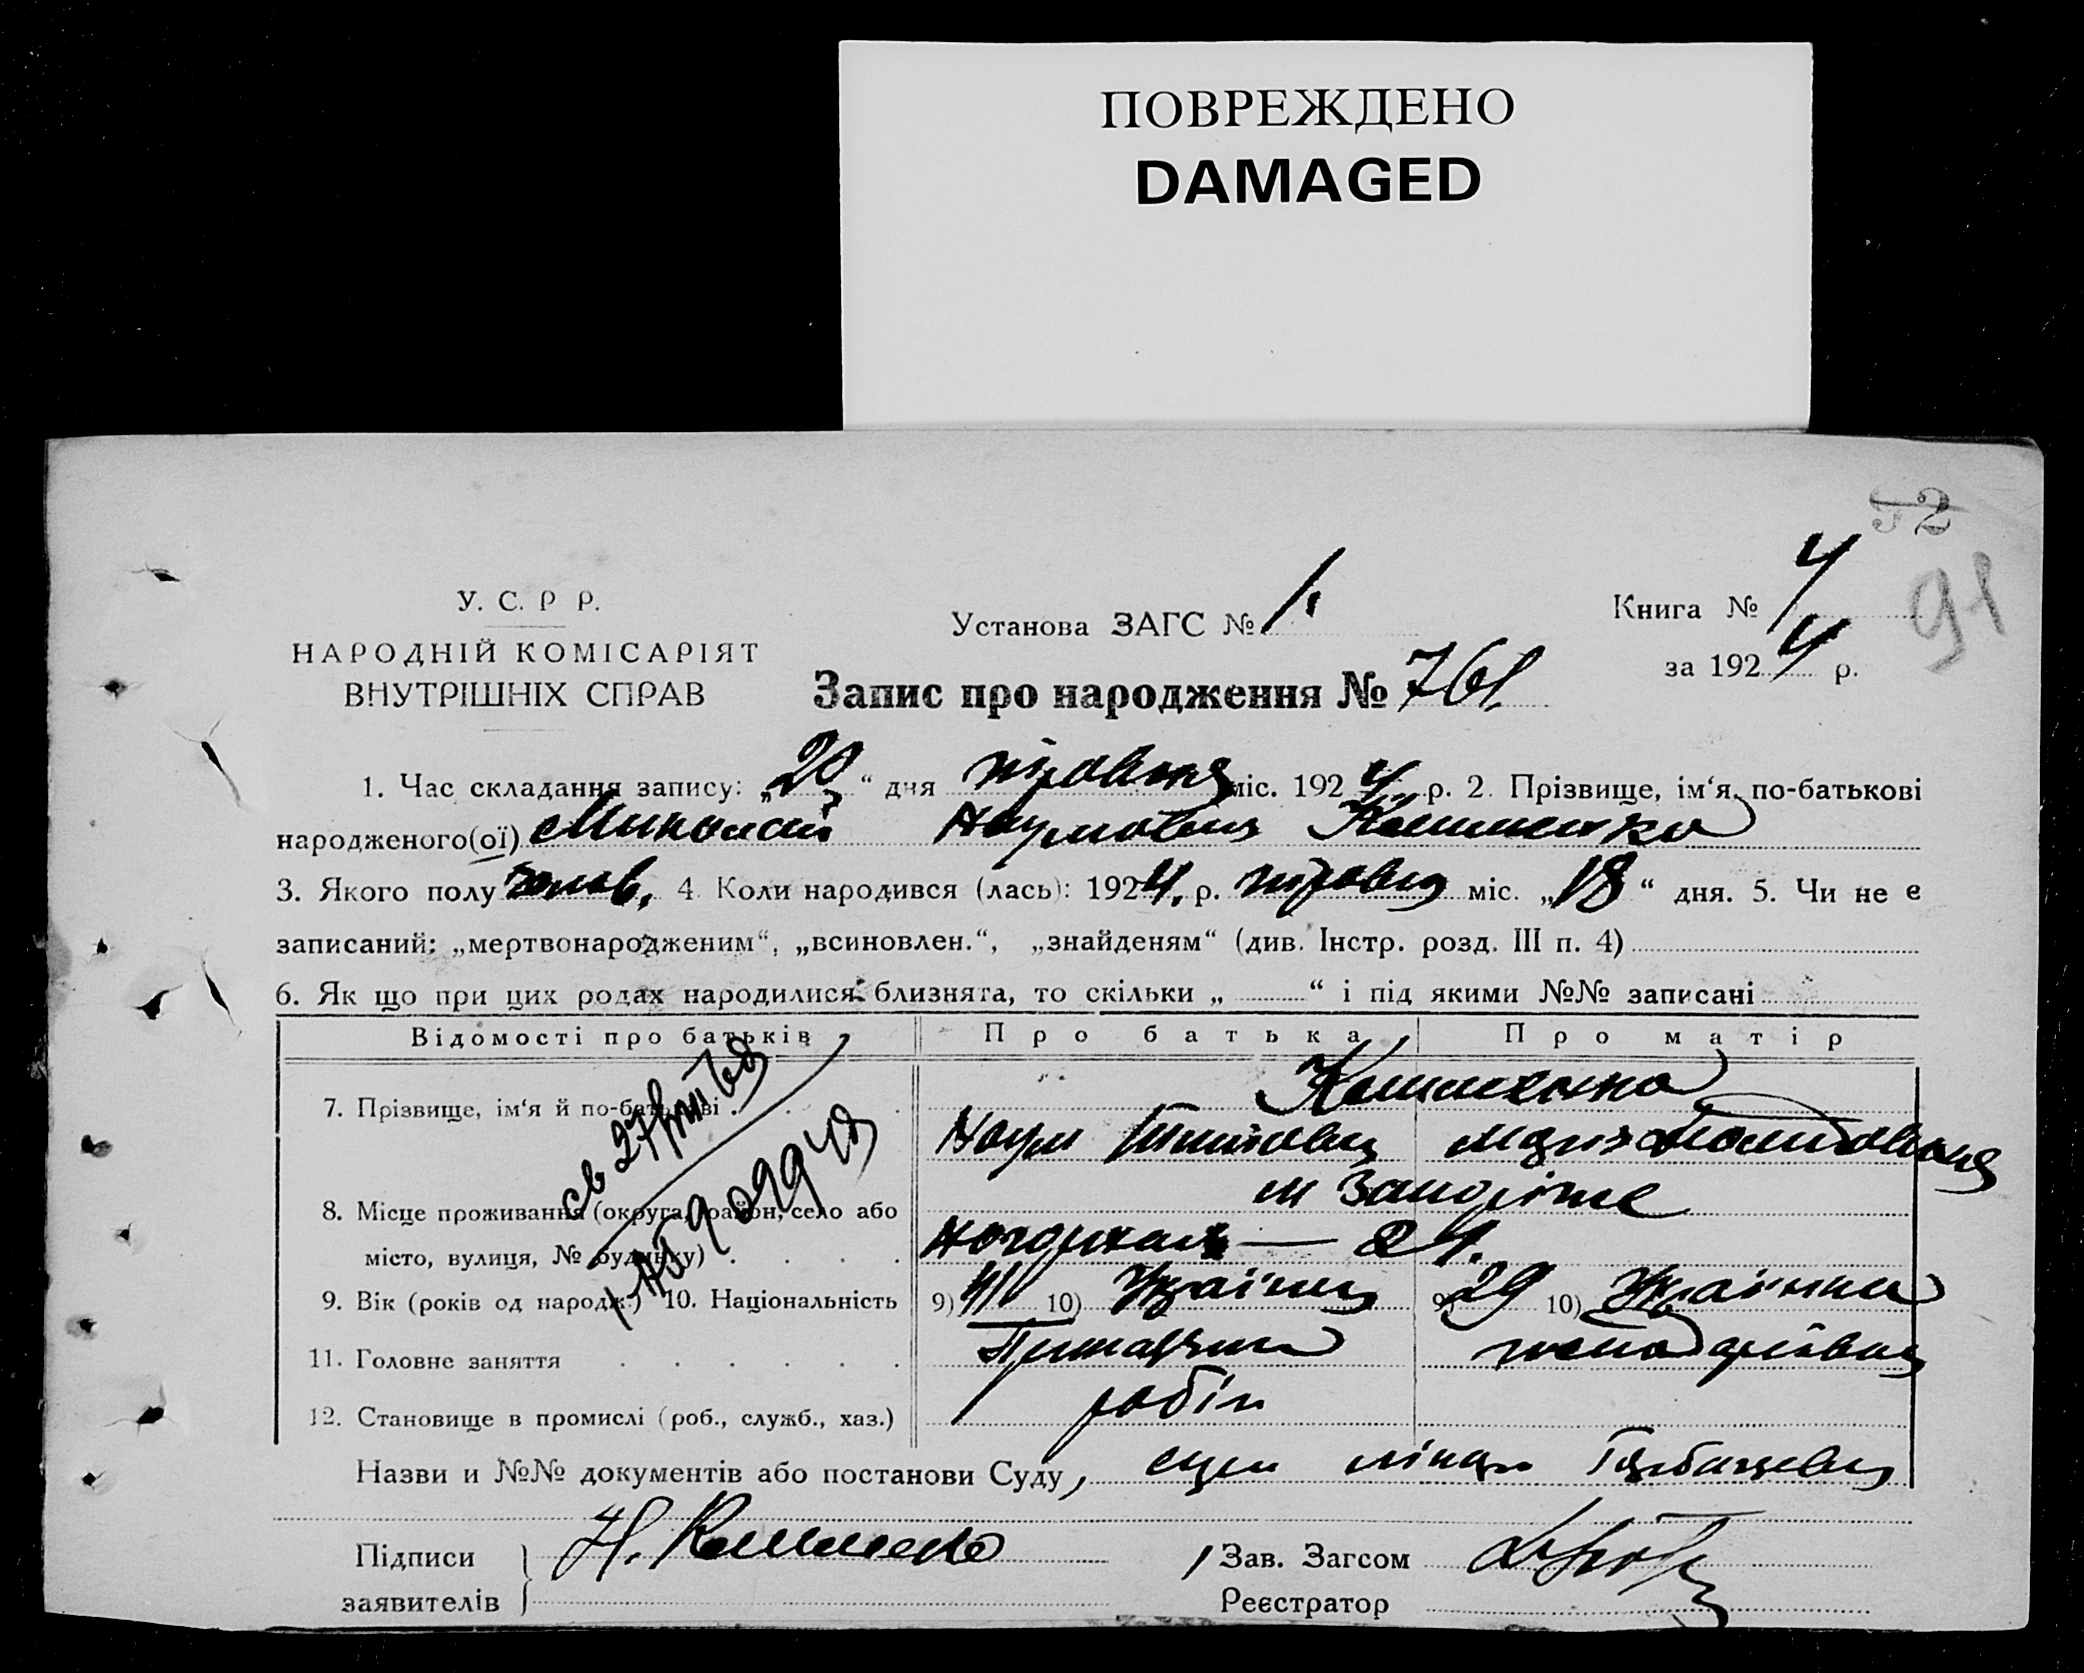 ПОВРЕЖДЕНО
DAMAGED
52
91
У. С. Р Р.
НАРОДНІЙ КОМІСАРІЯТ
ВНУТРІШНІХ СПРАВ
Установа ЗАГС № 1.
Книга № 4
за 1924 р.
Запис про народження № 761.
1. Час складання запису: „20“ дня травня міс. 1924. р. 2. Прізвище, ім‘я, по-батькові
народженого(ої) Миколай Наумович
3. Якого полу чолов. 4. Коли народився (лась): 1924. р. травня міс. „18“ дня. 5. Чи не є
записаний: „мертвонародженим“, „всиновлен.“, „знайденям“ (див. Інстр. розд. III п. 4)
6. Як що при цих родах народилися близнята, то скільки „ “ і під якими №№ записані
Відомості про батьків Про батька Про матір
7. Прізвище, ім‘я й по-батькові
Наум Титович
8. Місце проживання (округа, район, село або м Запоріжжє
місто, вулиця, № будинку) — 24.
9. Вік (років од народж.) 10. Національність 9) 41 10) Українец 9) 29 10) Українка
11. Головне заняття
12. Становище в промислі (роб., служб., хаз.) робіт
Назви и №№ документів або постанови Суду,
Підписи
заявителів
Н.
Зав. Загсом
Реєстратор